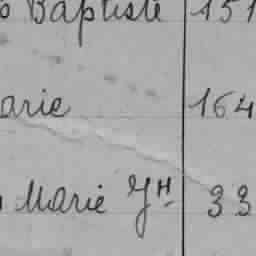 Baptiste 151
arie 164
Marie Jh 33